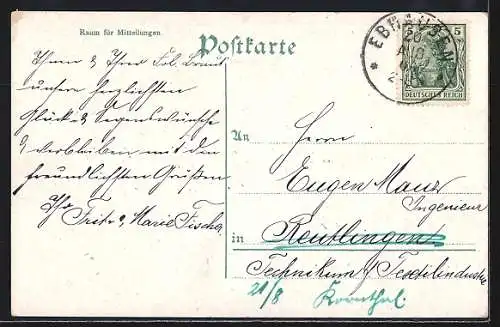 Raum für Mitteilungen.
Postkarte
Ihnen & Ihrer Frl. Braut
unsere herzlichsten
Glück- & Segenswünsche
& verbleiben mit den
freundlichsten Grüßen
Ihre Fritz & Marie Fischer
EBH
AUG
5
DEUTSCHES REICH
An
Herrn
Eugen Maur
Ingenieur
in Reutlingen
Technikum f/ Textilindustrie
21/8 Kornthal.